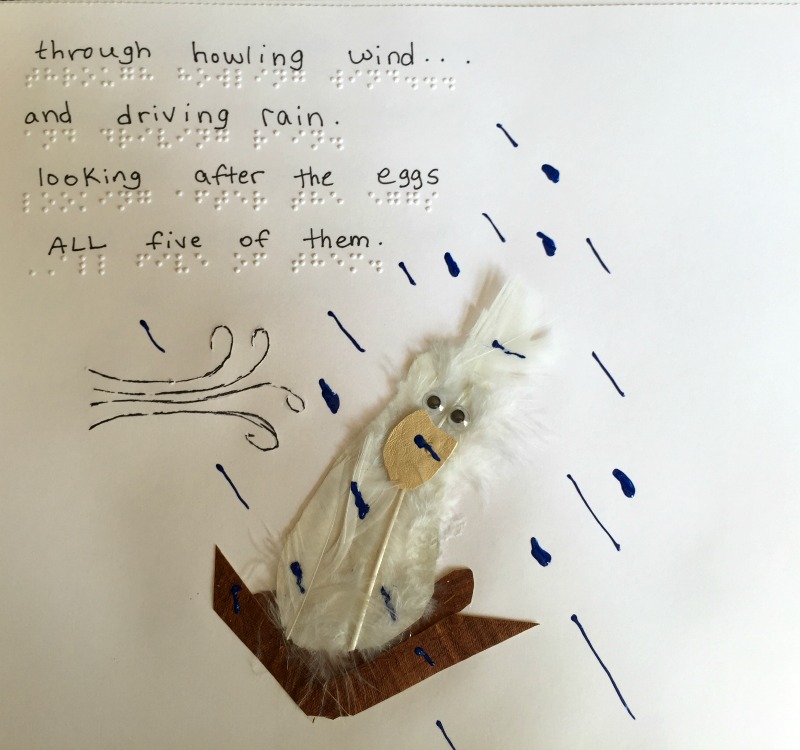 through howling wind...
and driving rain.
looking after the eggs
ALL five of them.